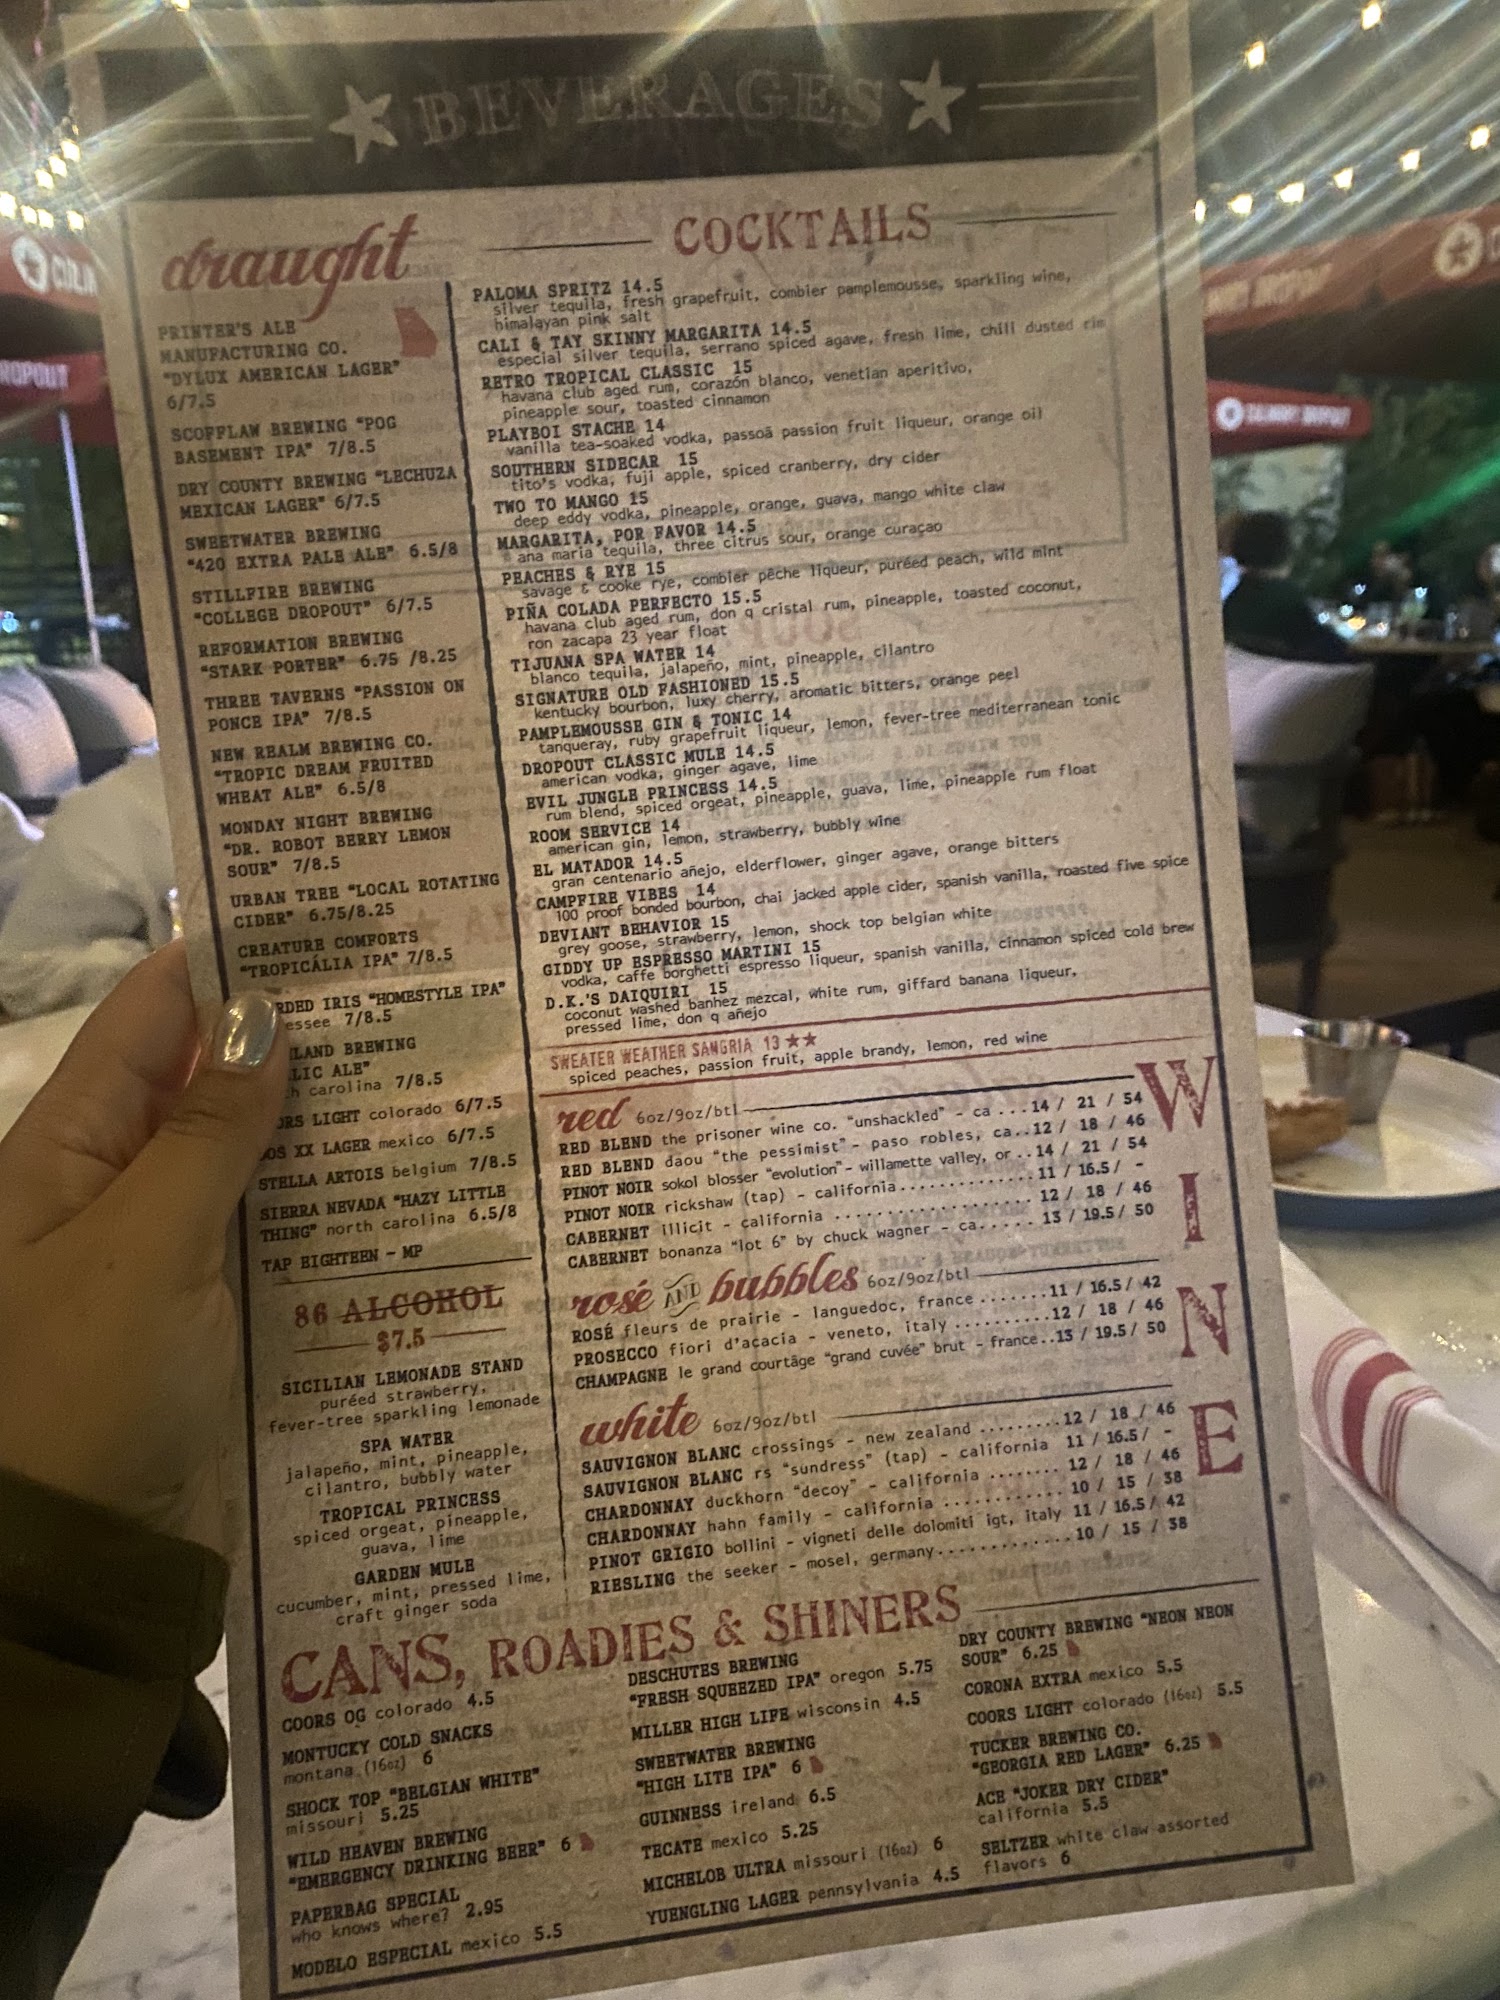 BEVERAGES
draught
PRINTER'S ALE
MANUFACTURING CO.
"DYLUX AMERICAN LAGER"
6/7.5
SCOFFLAW BREWING "POG
BASEMENT IPA" 7/8.5
DRY COUNTY BREWING "LECHUZA
MEXICAN LAGER" 6/7.5
SWEETWATER BREWING
"420 EXTRA PALE ALE" 6.5/8
STILLFIRE BREWING
"COLLEGE DROPOUT" 6/7.5
REFORMATION BREWING
"STARK PORTER" 6.75 /8.25
THREE TAVERNS "PASSION ON
PONCE IPA" 7/8.5
NEW REALM BREWING CO.
"TROPIC DREAM FRUITED
WHEAT ALE" 6.5/8
MONDAY NIGHT BREWING
"DR. ROBOT BERRY LEMON
SOUR" 7/8.5
URBAN TREE "LOCAL ROTATING
CIDER" 6.75/8.25
CREATURE COMFORTS
"TROPICÁLIA IPA" 7/8.5
RDED IRIS "HOMESTYLE IPA"
essee 7/8.5
LAND BREWING
LIC ALE"
h carolina 7/8.5
ORS LIGHT colorado 6/7.5
OS XX LAGER mexico 6/7.5
STELLA ARTOIS belgium 7/8.5
SIERRA NEVADA "HAZY LITTLE
THING" north carolina 6.5/8
TAP EIGHTEEN - MP
86 ALCOHOL
$7.5
SICILIAN LEMONADE STAND
puréed strawberry,
fever-tree sparkling lemonade
SPA WATER
jalapeño, mint, pineapple,
cilantro, bubbly water
TROPICAL PRINCESS
spiced orgeat, pineapple,
guava, lime
GARDEN MULE
cucumber, mint, pressed lime,
craft ginger soda
COCKTAILS
PALOMA SPRITZ 14.5
silver tequila, fresh grapefruit, combier pamplemousse, sparkling wine,
himalayan pink salt
CALI & TAY SKINNY MARGARITA 14.5
especial silver tequila, serrano spiced agave, fresh lime, chili dusted rim
RETRO TROPICAL CLASSIC 15
havana club aged rum, corazón blanco, venetian aperitivo,
pineapple sour, toasted cinnamon
PLAYBOI STACHE 14
vanilla tea-soaked vodka, passoã passion fruit liqueur, orange oil
SOUTHERN SIDECAR 15
tito's vodka, fuji apple, spiced cranberry, dry cider
TWO TO MANGO 15
deep eddy vodka, pineapple, orange, guava, mango white claw
MARGARITA, POR FAVOR 14.5
ana maria tequila, three citrus sour, orange curaçao
PEACHES & RYE 15
savage & cooke rye, combier pêche liqueur, puréed peach, wild mint
PIÑA COLADA PERFECTO 15.5
havana club aged rum, don q cristal rum, pineapple, toasted coconut,
ron zacapa 23 year float
TIJUANA SPA WATER 14
blanco tequila, jalapeño, mint, pineapple, cilantro
SIGNATURE OLD FASHIONED 15.5
kentucky bourbon, luxy cherry, aromatic bitters, orange peel
PAMPLEMOUSSE GIN & TONIC 14
tanqueray, ruby grapefruit liqueur, lemon, fever-tree mediterranean tonic
DROPOUT CLASSIC MULE 14.5
american vodka, ginger agave, lime
EVIL JUNGLE PRINCESS 14.5
rum blend, spiced orgeat, pineapple, guava, lime, pineapple rum float
ROOM SERVICE 14
american gin, lemon, strawberry, bubbly wine
EL MATADOR 14.5
gran centenario añejo, elderflower, ginger agave, orange bitters
CAMPFIRE VIBES 14
100 proof bonded bourbon, chai jacked apple cider, spanish vanilla, roasted five spice
DEVIANT BEHAVIOR 15
grey goose, strawberry, lemon, shock top belgian white
GIDDY UP ESPRESSO MARTINI 15
vodka, caffe borghetti espresso liqueur, spanish vanilla, cinnamon spiced cold brew
D.K.'S DAIQUIRI 15
coconut washed banhez mezcal, white rum, giffard banana liqueur,
pressed lime, don q añejo
SWEATER WEATHER SANGRIA 13 ★★
spiced peaches, passion fruit, apple brandy, lemon, red wine
WINE
red 6oz/9oz/btl
RED BLEND the prisoner wine co. "unshackled" - ca ...14 / 21 / 54
RED BLEND daou "the pessimist" - paso robles, ca..12 / 18 / 46
PINOT NOIR sokol blosser "evolution"- willamette valley, or ..14 / 21 / 54
PINOT NOIR rickshaw (tap) - california...............11 / 16.5/ -
CABERNET illicit - california ..................12 / 18 / 46
CABERNET bonanza "lot 6" by chuck wagner - ca..... 13 / 19.5/ 50
rosé AND bubbles 6oz/9oz/btl
ROSÉ fleurs de prairie - languedoc, france .......11 / 16.5/ 42
PROSECCO fiori d'acacia - veneto, italy ..........12 / 18 / 46
CHAMPAGNE le grand courtâge "grand cuvée" brut - france..13 / 19.5/ 50
white 6oz/9oz/btl
SAUVIGNON BLANC crossings - new zealand .........12 / 18 / 46
SAUVIGNON BLANC rs "sundress" (tap) - california 11 / 16.5/ -
CHARDONNAY duckhorn "decoy" - california ........ 12 / 18 / 46
CHARDONNAY hahn family - california ............ 10 / 15 / 38
PINOT GRIGIO bollini - vigneti delle dolomiti igt, italy 11 / 16.5/ 42
RIESLING the seeker - mosel, germany.............10 / 15 / 38
CANS, ROADIES & SHINERS
COORS OG colorado 4.5
MONTUCKY COLD SNACKS
montana (16oz) 6
SHOCK TOP "BELGIAN WHITE"
missouri 5.25
WILD HEAVEN BREWING
"EMERGENCY DRINKING BEER" 6
PAPERBAG SPECIAL
who knows where? 2.95
MODELO ESPECIAL mexico 5.5
DESCHUTES BREWING
"FRESH SQUEEZED IPA" oregon 5.75
MILLER HIGH LIFE wisconsin 4.5
SWEETWATER BREWING
"HIGH LITE IPA" 6
GUINNESS ireland 6.5
TECATE mexico 5.25
MICHELOB ULTRA missouri (16oz) 6
YUENGLING LAGER pennsylvania 4.5
DRY COUNTY BREWING "NEON NEON
SOUR" 6.25
CORONA EXTRA mexico 5.5
COORS LIGHT colorado (16oz) 5.5
TUCKER BREWING CO.
"GEORGIA RED LAGER" 6.25
ACE "JOKER DRY CIDER"
california 5.5
SELTZER white claw assorted
flavors 6